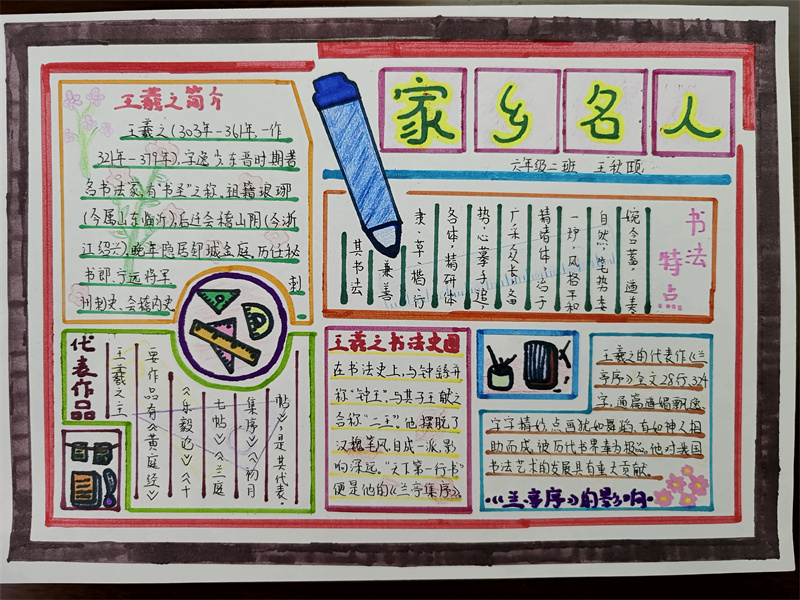 家乡名人
六年级二班 王秋颐
王羲之简介
王羲之(303年-361年,一作
321年-379年),字逸少,东晋时期著
名书法家,有"书圣"之称。祖籍琅琊
(今属山东临沂),后迁会稽山阴(今浙
江绍兴),晚年隐居郯城金庭,历任秘
书郎、宁远将军
刺
州刺史、会稽内史
书法特点
其书法
兼善
隶、草、楷、行
各体,精研体
势,心摹手追,
广采众长,备
精诸体,冶于
一炉,风格平和
自然,笔势委
婉含蓄,遒美
代表作品
王羲之主
要作品有《黄庭经》
《乐毅论》《十
七帖》《兰亭
集序》《初月
帖》,是其代表。
王羲之书法史图
在书法史上,与钟繇并
称"钟王",与其子王献之
合称"二王"。他摆脱了
汉魏笔风,自成一派,影
响深远。"天下第一行书"
便是他的《兰亭集序》。
王羲之的代表作《兰
亭序》全文28行,324
字,通篇遒媚飘逸
字字精妙,点画犹如舞蹈,有如神人相
助而成,被历代书界奉为极品。他对我国
书法艺术的发展具有重大贡献
《兰亭序》的影响